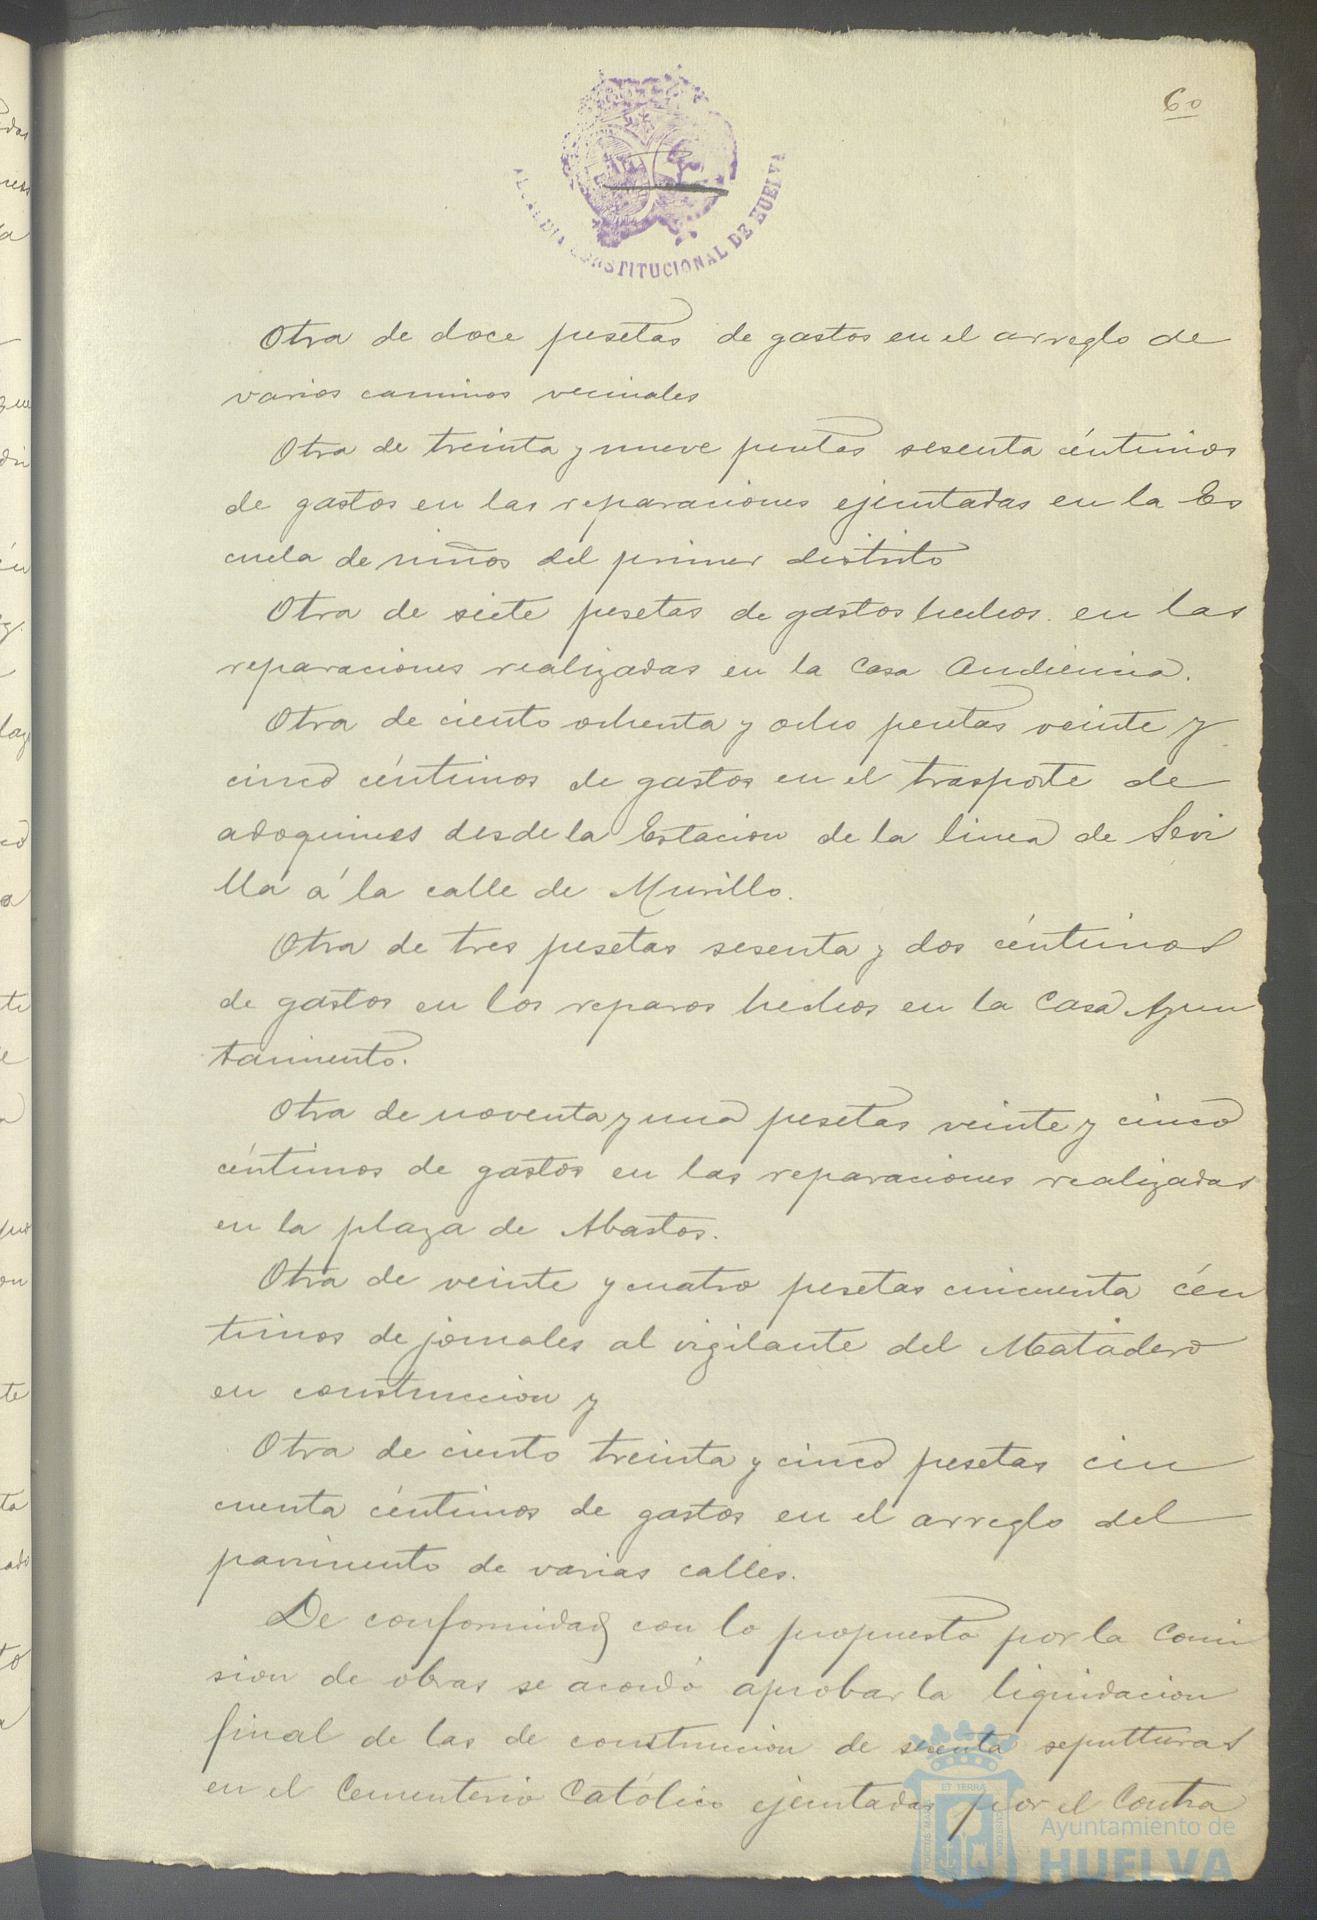 60
ALCALDIA CONSTITUCIONAL DE HUELVA
Otra de doce pesetas de gastos en el arreglo de
varios caminos vecinales
Otra de treinta y nueve pesetas sesenta céntimos
de gastos en las reparaciones ejecutadas en la Es
cuela de niños del primer distrito
Otra de siete pesetas de gastos hechos en las
reparaciones realizadas en la Casa Audiencia.
Otra de ciento ochenta y ocho pesetas veinte y
cinco céntimos de gastos en el trasporte de
adoquines desde la Estacion de la linea de Sevi
lla á la calle de Murillo.
Otra de tres pesetas sesenta y dos céntimos
de gastos en los reparos hechos en la Casa Ayun
tamiento.
Otra de noventa y una pesetas veinte y cinco
céntimos de gastos en las reparaciones realizadas
en la plaza de Abastos.
Otra de veinte y cuatro pesetas cincuenta cén
timos de jornales al vigilante del Matadero
en construccion y
Otra de ciento treinta y cinco pesetas cin
cuenta céntimos de gastos en el arreglo del
pavimento de varias calles.
De conformidad con lo propuesto por la Comi
sion de obras se acordó aprobar la liquidacion
final de las de construccion de sesenta sepulturas
en el Cementerio Católico ejecutadas por el Contra
Ayuntamiento de
HUELVA